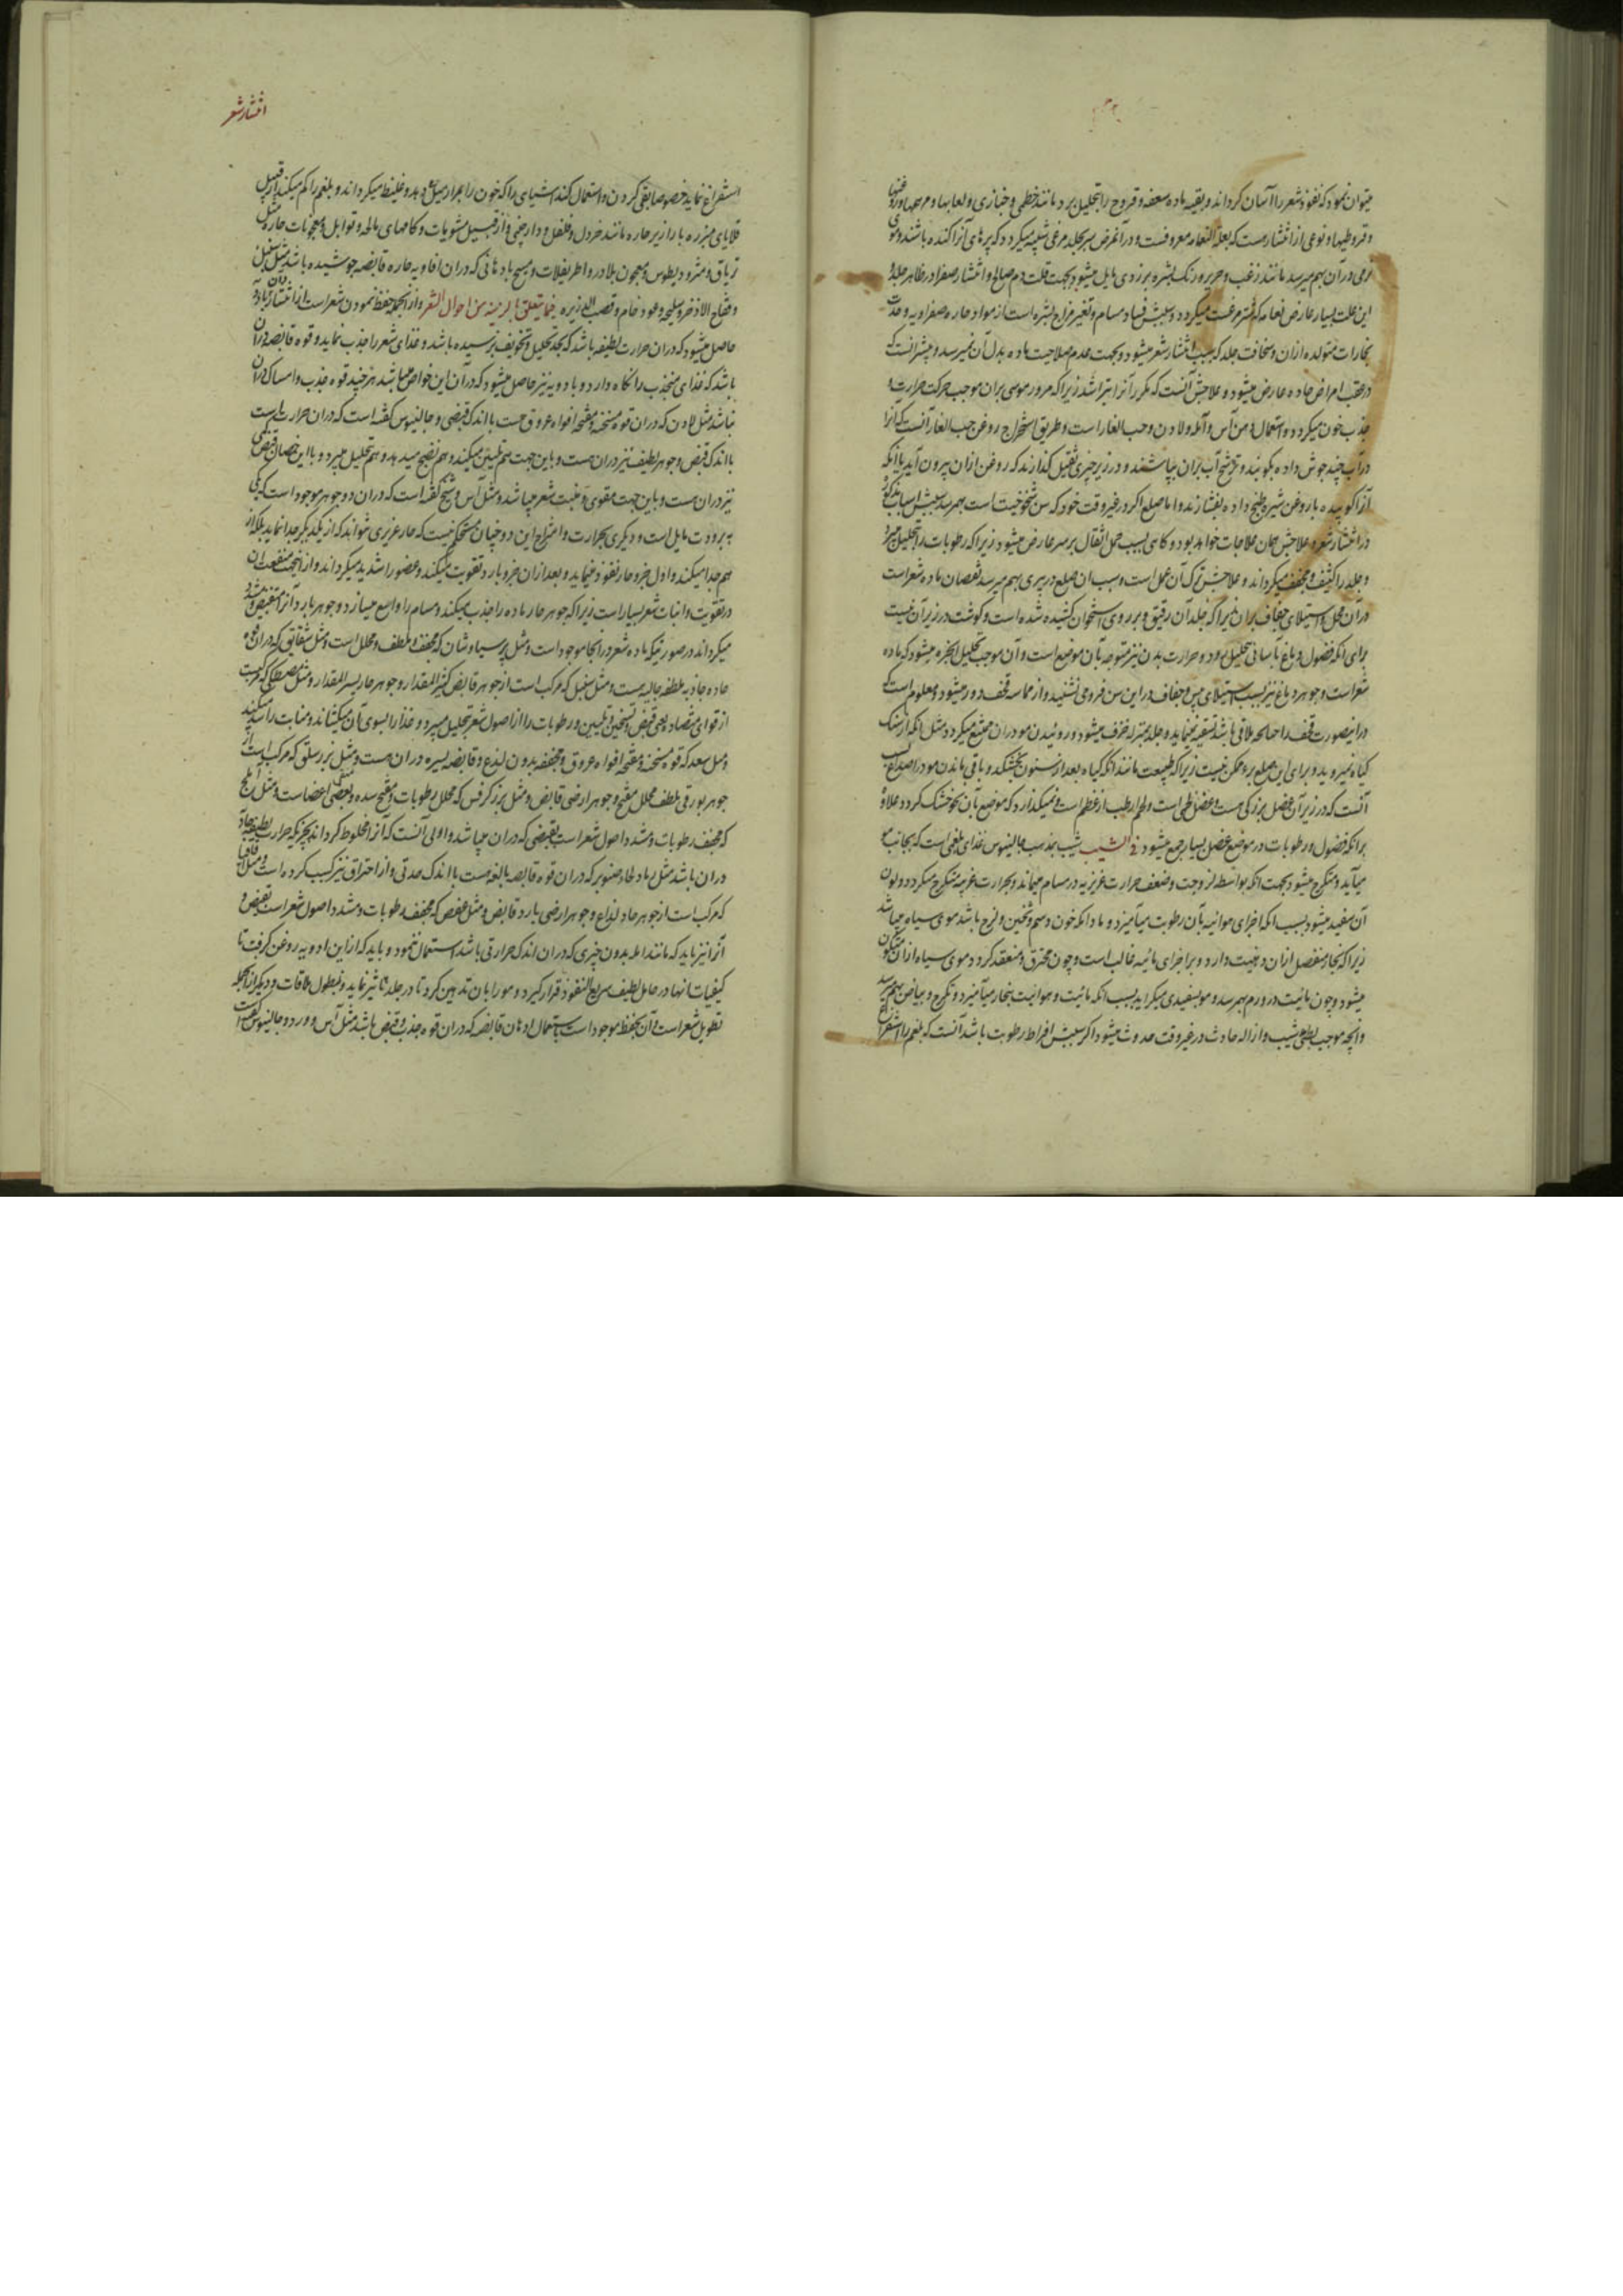 میتوان نمود که نفوذ شعر را آسان گرداند و بقیه ماده سعفه و قروح را بتحلیل برد مانند خطمی و خبازی و لعابها و مرهمها و روغنها
و قیروطیها و نوعی از انتشار هست که بعلة النعامه معروفست و در آنمرض سر بجلد مرغی شبیه میگردد که پرهای آنرا کنده باشند و موی
نرمی در آن بهم میرسد مانند زغب و حریر و رنگ بشره بزردی مایل میشود بجهت قلت دم صالح و انتشار صفرا در ظاهر جلد و
این علت بسیار عارض نعامه که شتر مرغست میگردد و سببش فساد مسام و تغیر مزاج بشره است از مواد حاره صفراویه و حدت
بخارات متولده ازان و سخافت جلد که سبب انتشار شعر میشود و بجهت عدم صلاحیت ماده بدل آن نمیرسد و بیشتر آنست که
در عقب امراض حاده عارض میشود و علاجش آنست که مکرر آنرا بتراشند زیرا که مرور موسی بران موجب حرکت حرارت و
جذب خون میگردد و استعمال دهن آس و آمله و لادن و حب الغار است و طریق استخراج روغن حب الغار آنست که آنرا
در آب چند جوش داده بکوبند و ترشح آب بران بپاشند و در زیر چیزی ثقیل گذارند که روغن ازان بیرون آید یا آنکه
آنرا کوبیده با روغن شیره طبخ داده بفشارند و اما صلع اگر در غیر وقت خود که سن شیخوخیت است بهم رسد سببش اسباب مذکوره
در انتشار شعر و علاجش همان علاجات خواهد بود و گاهی بسبب حمل اثقال بر سر عارض میشود زیرا که رطوبات را بتحلیل میبرد
و جلد را کثیف و مجفف میگرداند و علاجش ترک آن عمل است و سبب ان صلع در پیری بهم میرسد نقصان ماده شعر است
در آن محل و استیلای جفاف بران زیرا که جلد آن رقیق و بر روی استخوان کشیده شده است و گوشت در زیر آن نیست
برای آنکه فضول دماغ بآسانی تحلیل رود و حرارت بدن نیز متوجه بآن موضع است و آن موجب تحلیل ابخره میشود که ماده
شعر است و جوهر دماغ نیز بسبب استیلای یبس و جفاف در این سن فرو می نشیند و از مماسه قحف دور میشود و معلوم است که
در اینصورت قحف را چنانکه ملاقی باشد تسقیه نمینماید و جلد بمنزله خزف میشود و روئیدن مو دران ممتنع میگردد مثل آنکه از سنگ
گیاه نمیروید و برای این صلع برء ممکن نیست زیرا که طبیعت مانند آنکه گیاه بعد از سنون بخشکد و باقی ماندن مو در اصداغ بسبب
آنست که در زیر آن عضل بزرگی هست و عضل طی است و لحم ارطب از عظم است و نمیگذارد که موضع بآن نحو خشک گردد علاوه
برآنکه فضول و رطوبات در موضع عضل بسیار جمع میشود فی الشیب شیب بمذهب جالینوس غذای بلغمی است که بجانب مو
میآید و متکرج میشود بجهت آنکه بواسطه لزوجت و ضعف حرارت غریزیه در مسام میماند و بحرارت غریبه متکرج میگردد و لون
آن سفید میشود بسبب آنکه اجزای هوائیه بآن رطوبت میآمیزد و مادام که خون دسم و ثخین و لزج باشد موی سیاه میباشد
زیرا که بخار منفصل ازان دهنیت دارد و بر اجزای مائیه غالب است و چون محترق و منعقد گردد موی سیاه ازان متکون
میشود و چون مائیت در دم بهم رسد مو بسفیدی میگراید بسبب آنکه مائیت و هوائیت ببخار میآمیزد و تکرج و بیاض بهم میرسد
و آنچه موجب بطؤ شیب و ازاله حادث در غیر وقت حدوث میشود اگر سببش افراط رطوبت باشد آنست که بلغم را استفراغ
انتشار شعر
استفراغ نماید خصوصا بقی کردن و استعمال کند اشیای را که خون را بمرار میل دهد و غلیظ میگرداند و بلغم را کم میکند از قبیل
قلایای مبزره بابازیر حاره مانند خردل و فلفل و دارچینی و از قبیل مشویات و کامهای مالحه و توابل و معجونات حاره مثل
تریاق و مثرودیطوس و معجون بلادر و اطریفلات و مسیح بادهانی که دران افاویه حاره قابضه جوشیده باشد مثل سنبل
و فقاح الاذخر و سلیخه و عود خام و قصب الذریره فیما یتعلق بالزینه من احوال الشعر و از آنجمله حفظ نمودن شعر است از انتشار و آن بادویه
حاصل میشود که دران حرارت لطیفه باشد که بحد تحلیل و تجفیف نرسیده باشد و غذای شعر را جذب نماید و قوه قابضه دران
باشد که غذای منجذب را نگاه دارد و بادویه نیز حاصل میشود که در آن این خواص میباشد هر چند قوه جذب و امساک دران
نباشد مثل لادن که دران قوه مسخنه و مفتحه افواه عروق هست با اندک قبضی و جالینوس گفته است که دران حرارت است
با اندک قبض و جوهر لطیف نیز دران هست و باین جهت هم تلیین میکند و هم نضج میدهد و هم تحلیل میبرد و با این خصال قبض
نیز دران هست و باین جهت مقوی و منبت شعر میباشد و مثل آس و شیخ گفته است که دران دو جوهر موجود است که یکی
ببرودت مایل است و دیگری بحرارت و امتزاج این دو چنان مستحکم نیست که حار غریزی نتواند که از یکدیگر جدا نماید بلکه از
هم جدا میکند و اول جزو حار نفوذ مینماید و بعد ازان جزو بارد تقویت میکند و عضو را شدید میگرداند و ازینجهت منفعت ان
در تقویت و انبات شعر بسیار است زیرا که جوهر حار ماده را جذب میکند و مسام را واسع میسازد و جوهر بارد آنرا منقبض و مشدد
میگرداند در صورتیکه ماده شعر در انجا موجود است و مثل پرسیاوشان که مجفف و ملطف و محلل است و مثل شقایق که دران قوه
حاده جاذبه ملطفه جالیه هست و مثل سنبل که مرکب است از جوهر قابض کثیر المقدار و جوهر حار یسیر المقدار و مثل مصطکی که مرکبست
از قوای متضاده یعنی قبض و تسخین و تلیین و رطوبات را از اصول شعر بتحلیل میبرد و غذا را بسوی آن میکشاند و منابت را شدید میکند
و مثل سعد که قوه مسخنه و مفتحه افواه عروق و مجففه بدون لذع و قابضه یسیره دران هست و مثل بزر سلق که مرکب است از
جوهر بورقی ملطف محلل مفتح و جوهر ارضی قابض و مثل بزر کرفس که محلل رطوبات و مفتح سده و منقی بعضی اعضاست و مثل املج
که مجفف رطوبات و مشدد اصول شعر است بقبضی که دران میباشد و اولی آنست که آنرا مخلوط گرداند بچیزیکه حرارت لطیفه جاذبه
دران باشد و مثل رماد لحاء صنوبر که دران قوه قابضه بالغه هست با اندک حدتی و از احتراق نیز کسب کرده است و مثل اقاقیا
که مرکب است از جوهر حاد لذاع و جوهر ارضی بارد قابض و مثل عفص که مجفف رطوبات و مشدد اصول شعر است بقبض و
آنرا نیز باید که مانند املج بدون چیزی که دران اندک حرارتی باشد استعمال ننمود و باید که از این ادویه روغن گرفت تا
کیفیات آنها در حامل لطیف سریع النفوذ قرار گیرد و مو را بآن تدهین کرد تا در جلد تاثیر نماید و بطول ملاقات و دیگر از آنجمله
تطویل شعر است و آن بحفظ موجود است باستعمال ادهان قابضه که دران قوه جذب و قبض باشد مثل آس و ورد و جالینوس گفته است